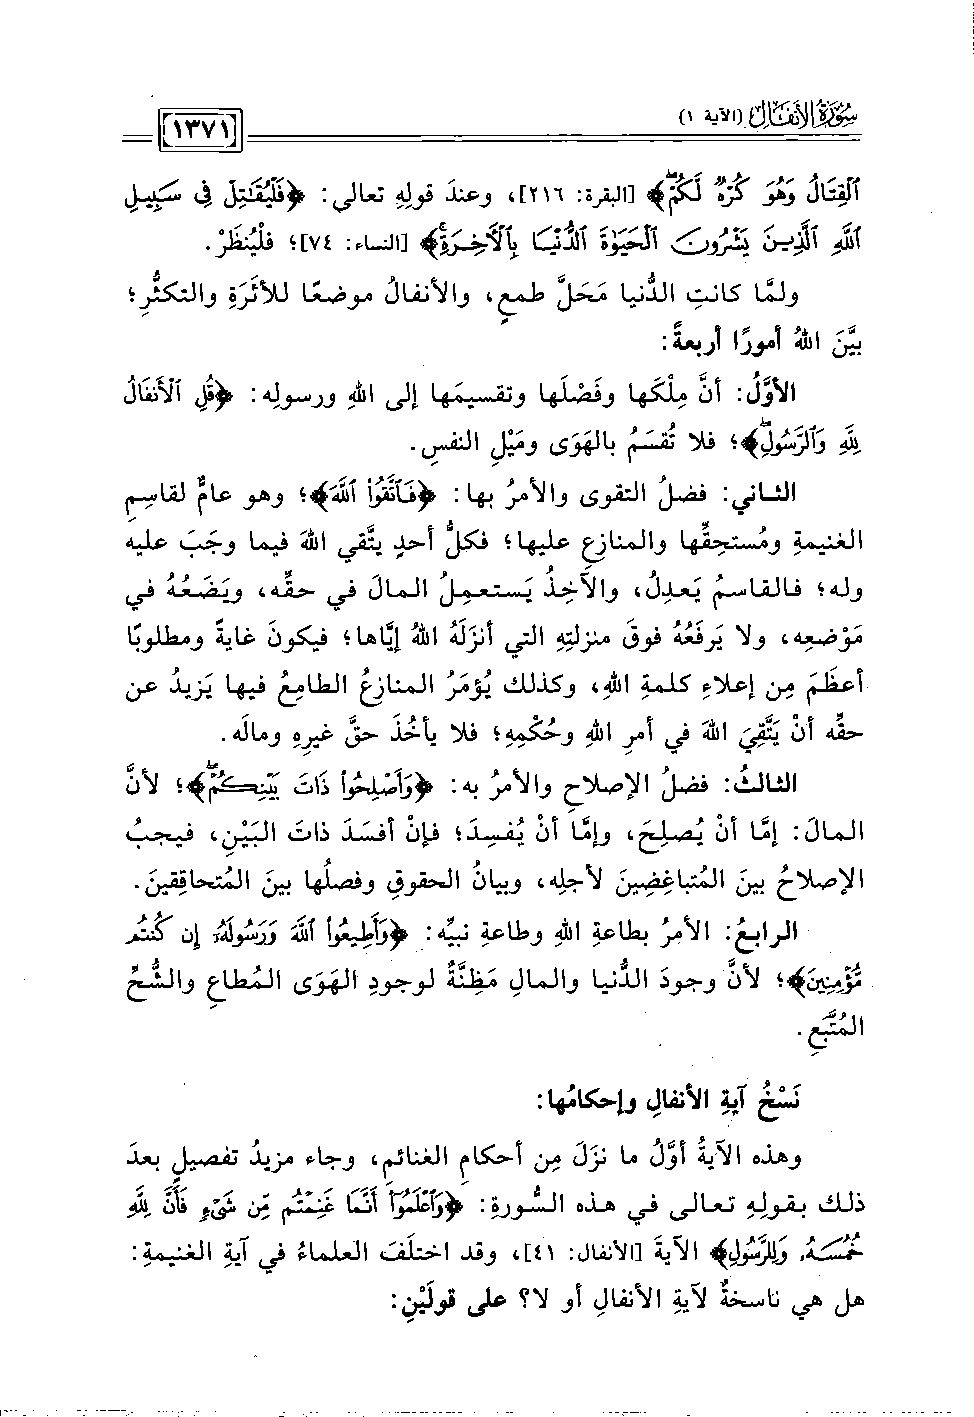 سُورَةُ الأَنفَالِ (الآية ١)
١٣٧١
ٱلْقِتَالُ وَهُوَ كُرْهٌ لَّكُمْ ۖ﴾ [البقرة: ٢١٦]، وعندَ قولِهِ تعالى: ﴿فَلْيُقَٰتِلْ فِى سَبِيلِ
ٱللَّهِ ٱلَّذِينَ يَشْرُونَ ٱلْحَيَوٰةَ ٱلدُّنْيَا بِٱلْآخِرَةِ ۚ﴾ [النساء: ٧٤]؛ فلْيُنظَرْ.
ولمَّا كانتِ الدُّنيا مَحَلَّ طمعٍ، والأنفالُ موضعًا للأثَرَةِ والتكثُّرِ؛
بيَّنَ اللهُ أمورًا أربعةً:
الأوَّلُ: أنَّ مِلْكَها وفَصْلَها وتقسيمَها إلى اللهِ ورسولِه: ﴿قُلِ ٱلْأَنفَالُ
لِلَّهِ وَٱلرَّسُولِ ۖ﴾؛ فلا تُقسَمُ بالهَوَى ومَيْلِ النفسِ.
الثاني: فضلُ التقوى والأمرُ بها: ﴿فَٱتَّقُوا۟ ٱللَّهَ﴾؛ وهو عامٌّ لقاسِمِ
الغنيمةِ ومُستحِقِّها والمنازعِ عليها؛ فكلُّ أحدٍ يتَّقي اللهَ فيما وجَبَ عليه
وله؛ فالقاسمُ يَعدِلُ، والآخِذُ يَستعمِلُ المالَ في حقِّه، ويَضَعُهُ في
مَوْضعِه، ولا يَرفَعُهُ فوقَ منزلتِهِ التي أنزَلَهُ اللهُ إيَّاها؛ فيكونَ غايةً ومطلوبًا
أعظَمَ مِن إعلاءِ كلمةِ اللهِ، وكذلك يُؤمَرُ المنازعُ الطامِعُ فيها يَزيدُ عن
حقِّه أنْ يَتَّقِيَ اللهَ في أمرِ اللهِ وحُكْمِهِ؛ فلا يأخُذَ حقَّ غيرِهِ ومالَه.
الثالثُ: فضلُ الإصلاحِ والأمرُ به: ﴿وَأَصْلِحُوا۟ ذَاتَ بَيْنِكُمْ ۖ﴾؛ لأنَّ
المالَ: إمَّا أنْ يُصلِحَ، وإمَّا أنْ يُفسِدَ؛ فإنْ أفسَدَ ذاتَ البَيْنِ، فيجبُ
الإصلاحُ بينَ المُتباغِضِينَ لأجلِه، وبيانُ الحقوقِ وفصلُها بينَ المُتحاقِقينَ.
الرابعُ: الأمرُ بطاعةِ اللهِ وطاعةِ نبيِّه: ﴿وَأَطِيعُوا۟ ٱللَّهَ وَرَسُولَهُۥ إِن كُنتُم
مُّؤْمِنِينَ﴾؛ لأنَّ وجودَ الدُّنيا والمالِ مَظِنَّةٌ لوجودِ الهَوَى المُطاعِ والشُّحِّ
المُتَّبَعِ.
نَسْخُ آيةِ الأنفالِ وإحكامُها:
وهذه الآيةُ أوَّلُ ما نزَلَ مِن أحكامِ الغنائمِ، وجاء مزيدُ تفصيلٍ بعدَ
ذلك بقولِهِ تعالى في هذه السُّورةِ: ﴿وَٱعْلَمُوٓا۟ أَنَّمَا غَنِمْتُم مِّن شَىْءٍ فَأَنَّ لِلَّهِ
خُمُسَهُۥ وَلِلرَّسُولِ﴾ الآيةَ [الأنفال: ٤١]، وقد اختلَفَ العلماءُ في آيةِ الغنيمةِ:
هل هي ناسخةٌ لآيةِ الأنفالِ أو لا؟ على قولَيْنِ: